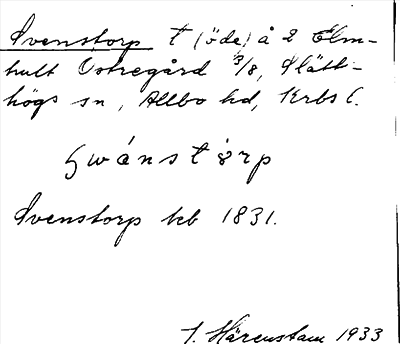 Svenstorp t (öde) å 2 Elm-
hult Östregård 3/8, Slätt-
högs sn, Allbo hd, Krbs l.
swánstórp
Svenstorp kb 1831.
J. Härenstam 1933